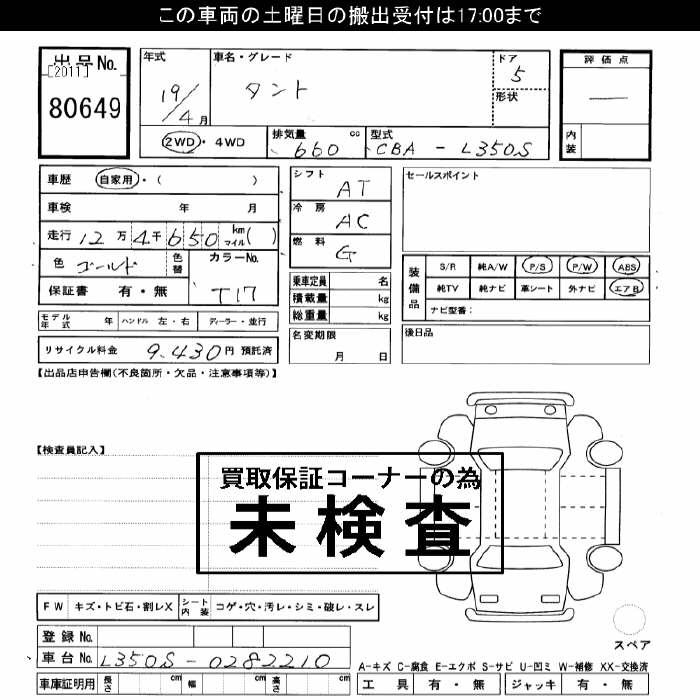 この車両の土曜日の搬出受付は17:00まで
出品No.
[2011]
80649
年式
19/4月
車名・グレード
タント
ドア
5
形状
評価点
―
内装
2WD・4WD
排気量 cc
660
型式
CBA - L350S
車歴 自家用・( )
車検 年 月
走行 12万4千650 km マイル( )
色 ゴールド 色替
カラーNo.
T17
保証書 有・無
シフト
AT
冷房
AC
燃料
G
乗車定員 名
積載量 kg
総重量 kg
セールスポイント
装備品
S/R 純A/W P/S P/W ABS
純TV 純ナビ 革シート 外ナビ エアB
ナビ型番:
モデル年式 年 ハンドル 左・右 ディーラー・並行
名変期限
月 日
後日品
リサイクル料金 9,430円 預託済
【出品店申告欄(不良箇所・欠品・注意事項等)】
【検査員記入】
買取保証コーナーの為
未検査
FW キズ・トビ石・割レX シート内装 コゲ・穴・汚レ・シミ・破レ・スレ
スペア
登録No.
車台No. L350S-0282210
車庫証明用 長さ cm 幅 cm 高さ cm
A-キズ C-腐食 E-エクボ S-サビ U-凹ミ W-補修 XX-交換済
工具 有・無 ジャッキ 有・無